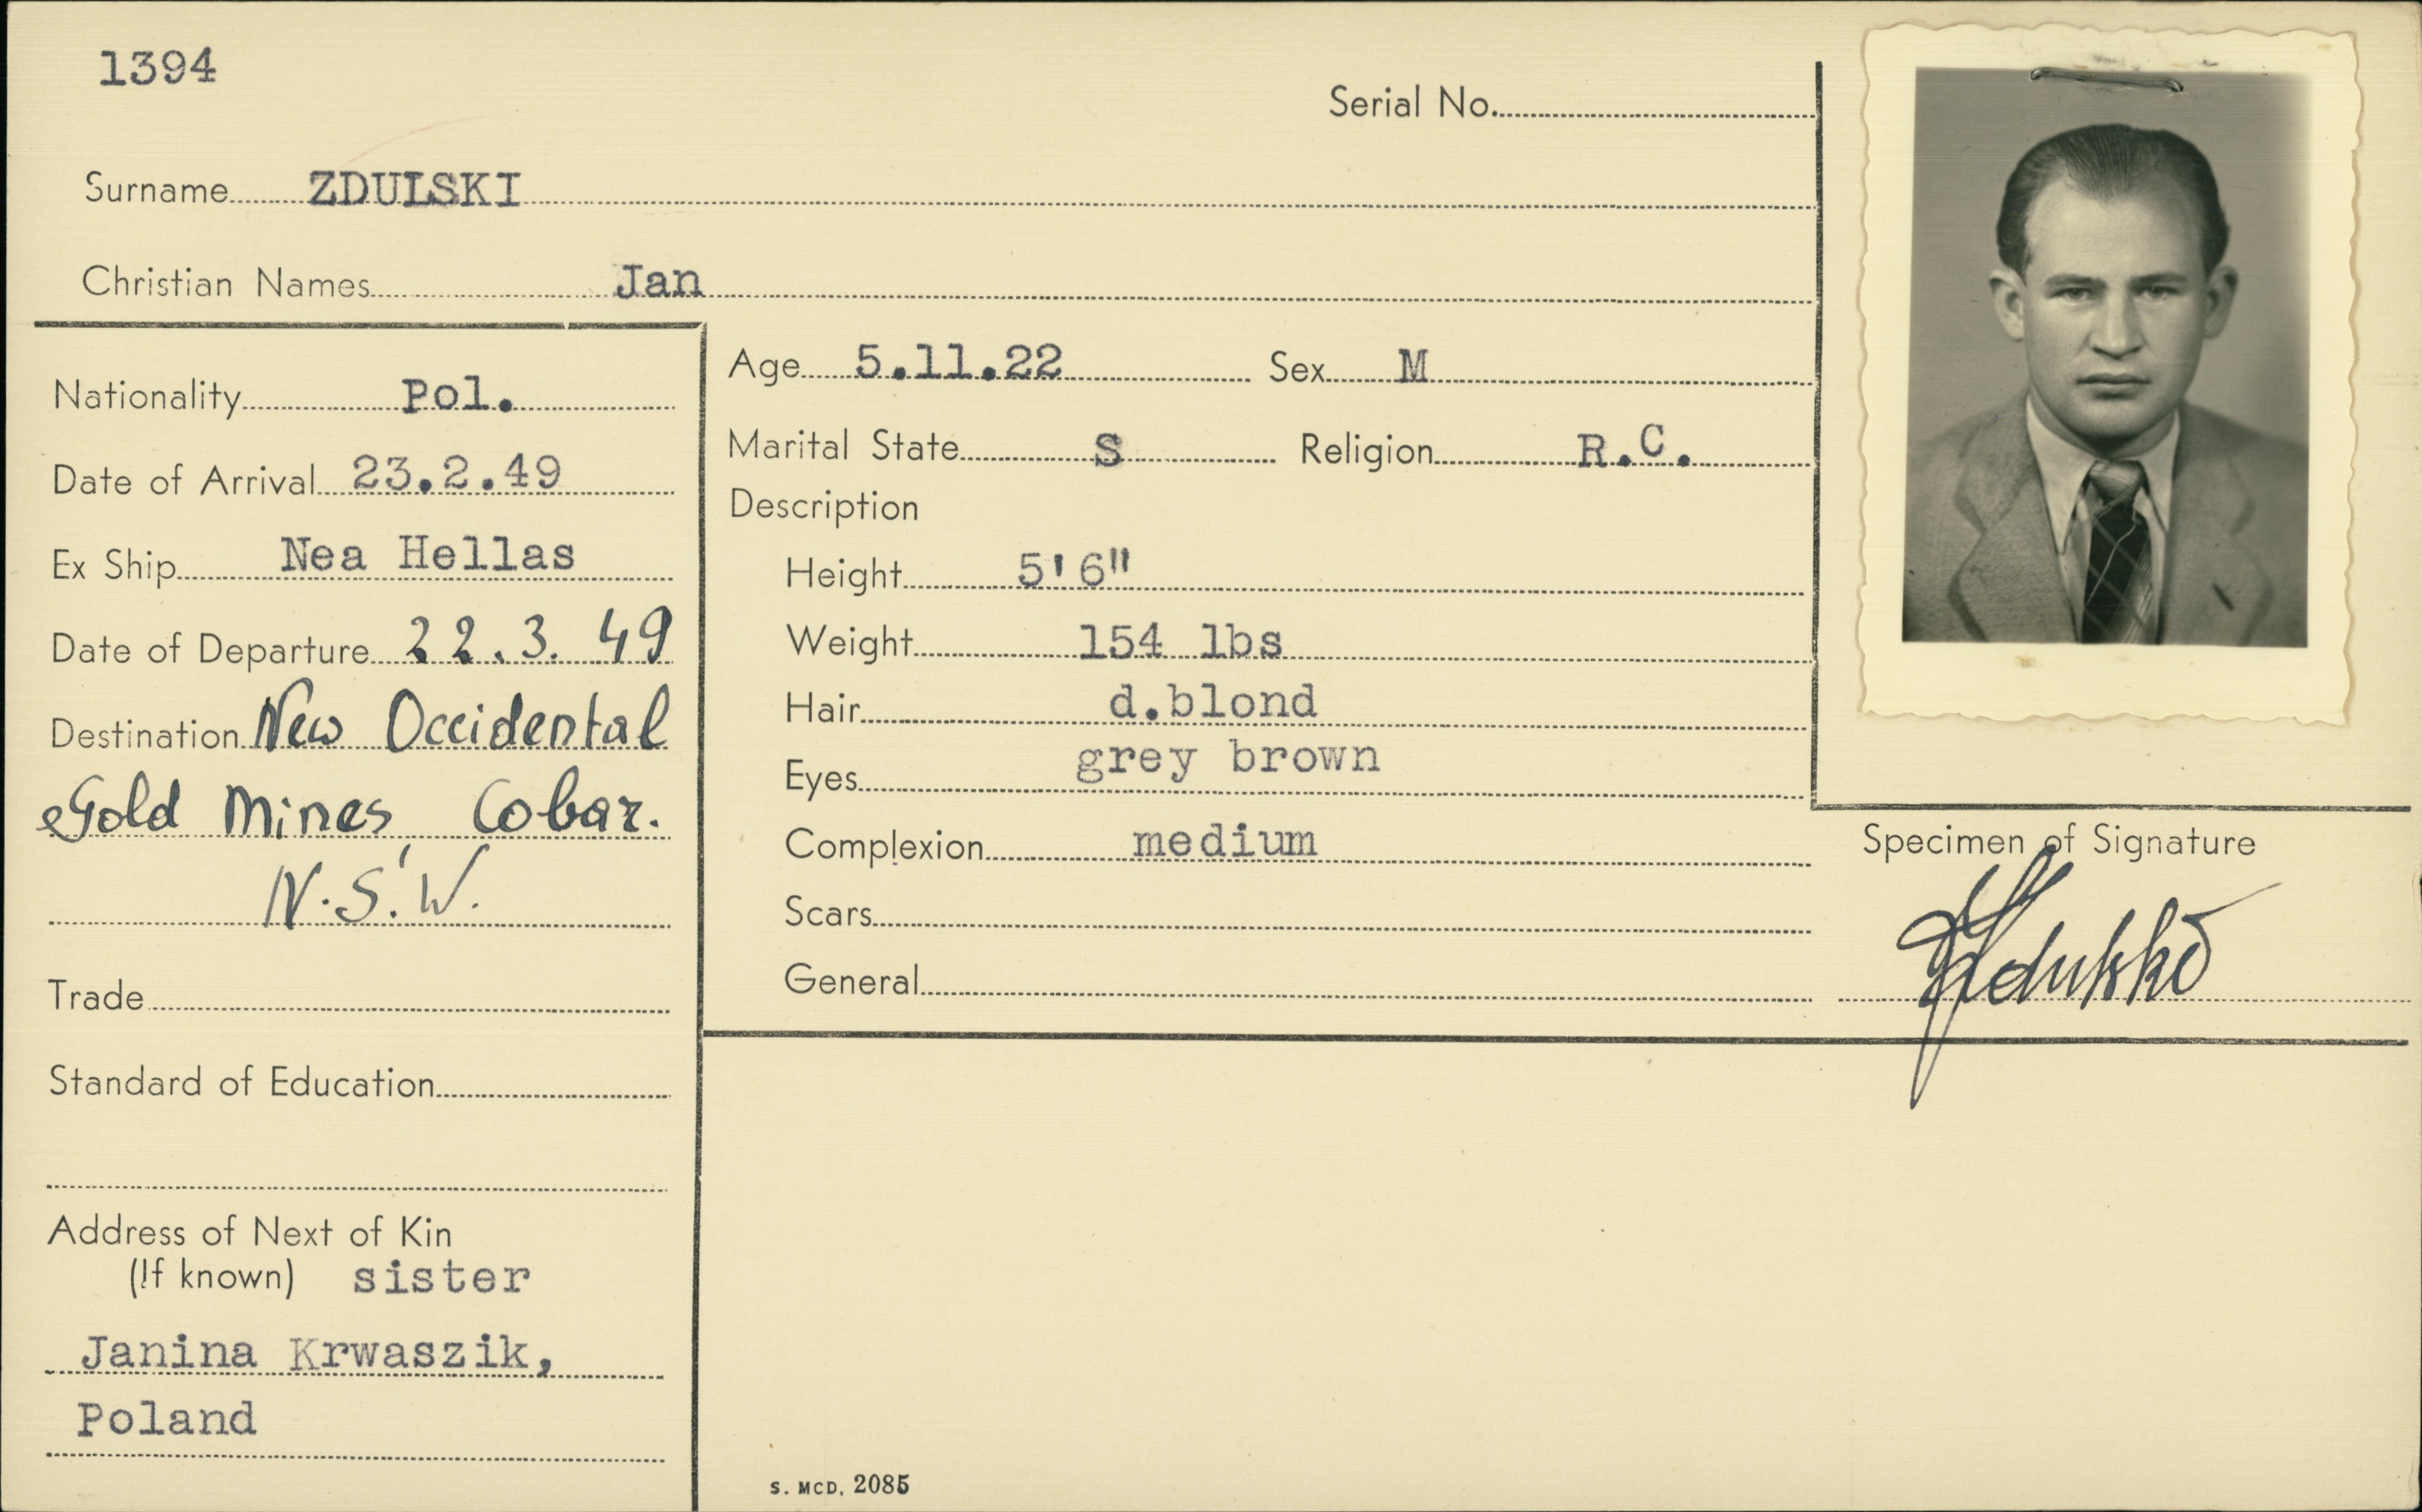 1394
Serial No.
Surname ZDULSKI
Christian Names Jan
Nationality Pol.
Date of Arrival 23.2.49
Ex Ship Nea Hellas
Date of Departure 22.3.49
Destination New Occidental
Gold Mines, Cobar.
N.S.W.
Trade
Standard of Education
Address of Next of Kin
(If known) sister
Janina Krwaszik,
Poland
Age 5.11.22 Sex M
Marital State S Religion R.C.
Description
Height 5'6"
Weight 154 lbs
Hair d.blond
Eyes grey brown
Complexion medium
Scars
General
Specimen of Signature
Zdulski
S. MCD. 2085